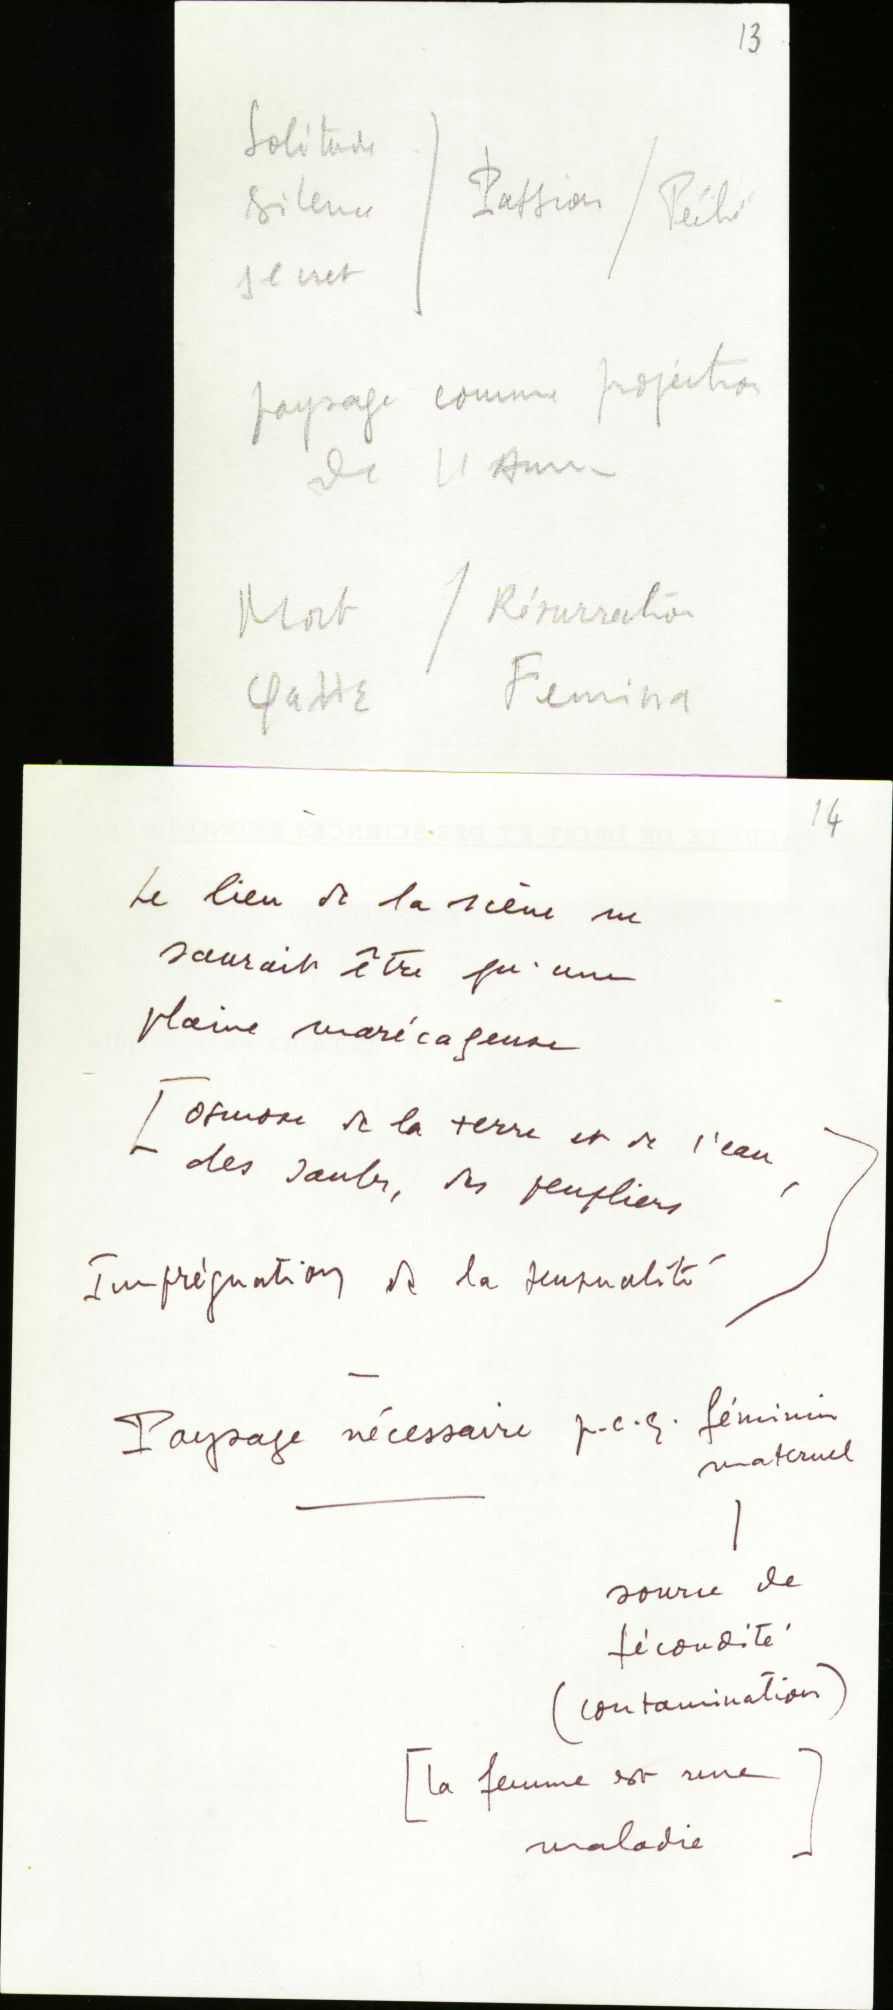 13
Solitude
Silence / Passion / Péché
secret
paysage comme projection
de
Mort / Résurrection
Femina
14
Le lieu de la scène ne
saurait être qu'une
plaine marécageuse
[ osmose de la terre et de l'eau,
des saules, des peupliers
Imprégnation de la sensualité
Paysage nécessaire p.c.q. féminin
maternel
source de
fécondité
(contamination)
[la femme est une
maladie]